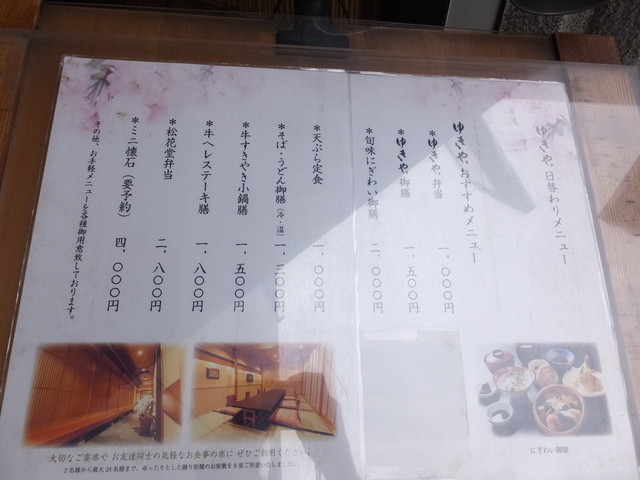 ゆきや 日替わりメニュー
ゆきや おすすめメニュー
*ゆきや弁当 一、〇〇〇円
*ゆきや御膳 一、五〇〇円
*旬味にぎわい御膳 二、〇〇〇円
*天ぷら定食 一、〇〇〇円
*そば・うどん御膳(冷・温) 一、三〇〇円
*牛すきやき小鍋膳 一、五〇〇円
*牛ヘレステーキ膳 一、八〇〇円
*松花堂弁当 二、八〇〇円
*ミニ懐石(要予約) 四、〇〇〇円
その他、お手軽メニューを各種御用意致しております。
にぎわい御膳
大切なご宴席や お友達同士の気軽なお食事の席に ぜひご利用ください。
2名様から最大24名様まで、ゆったりとした掘り炬燵のお座敷を8室ご用意いたしました。